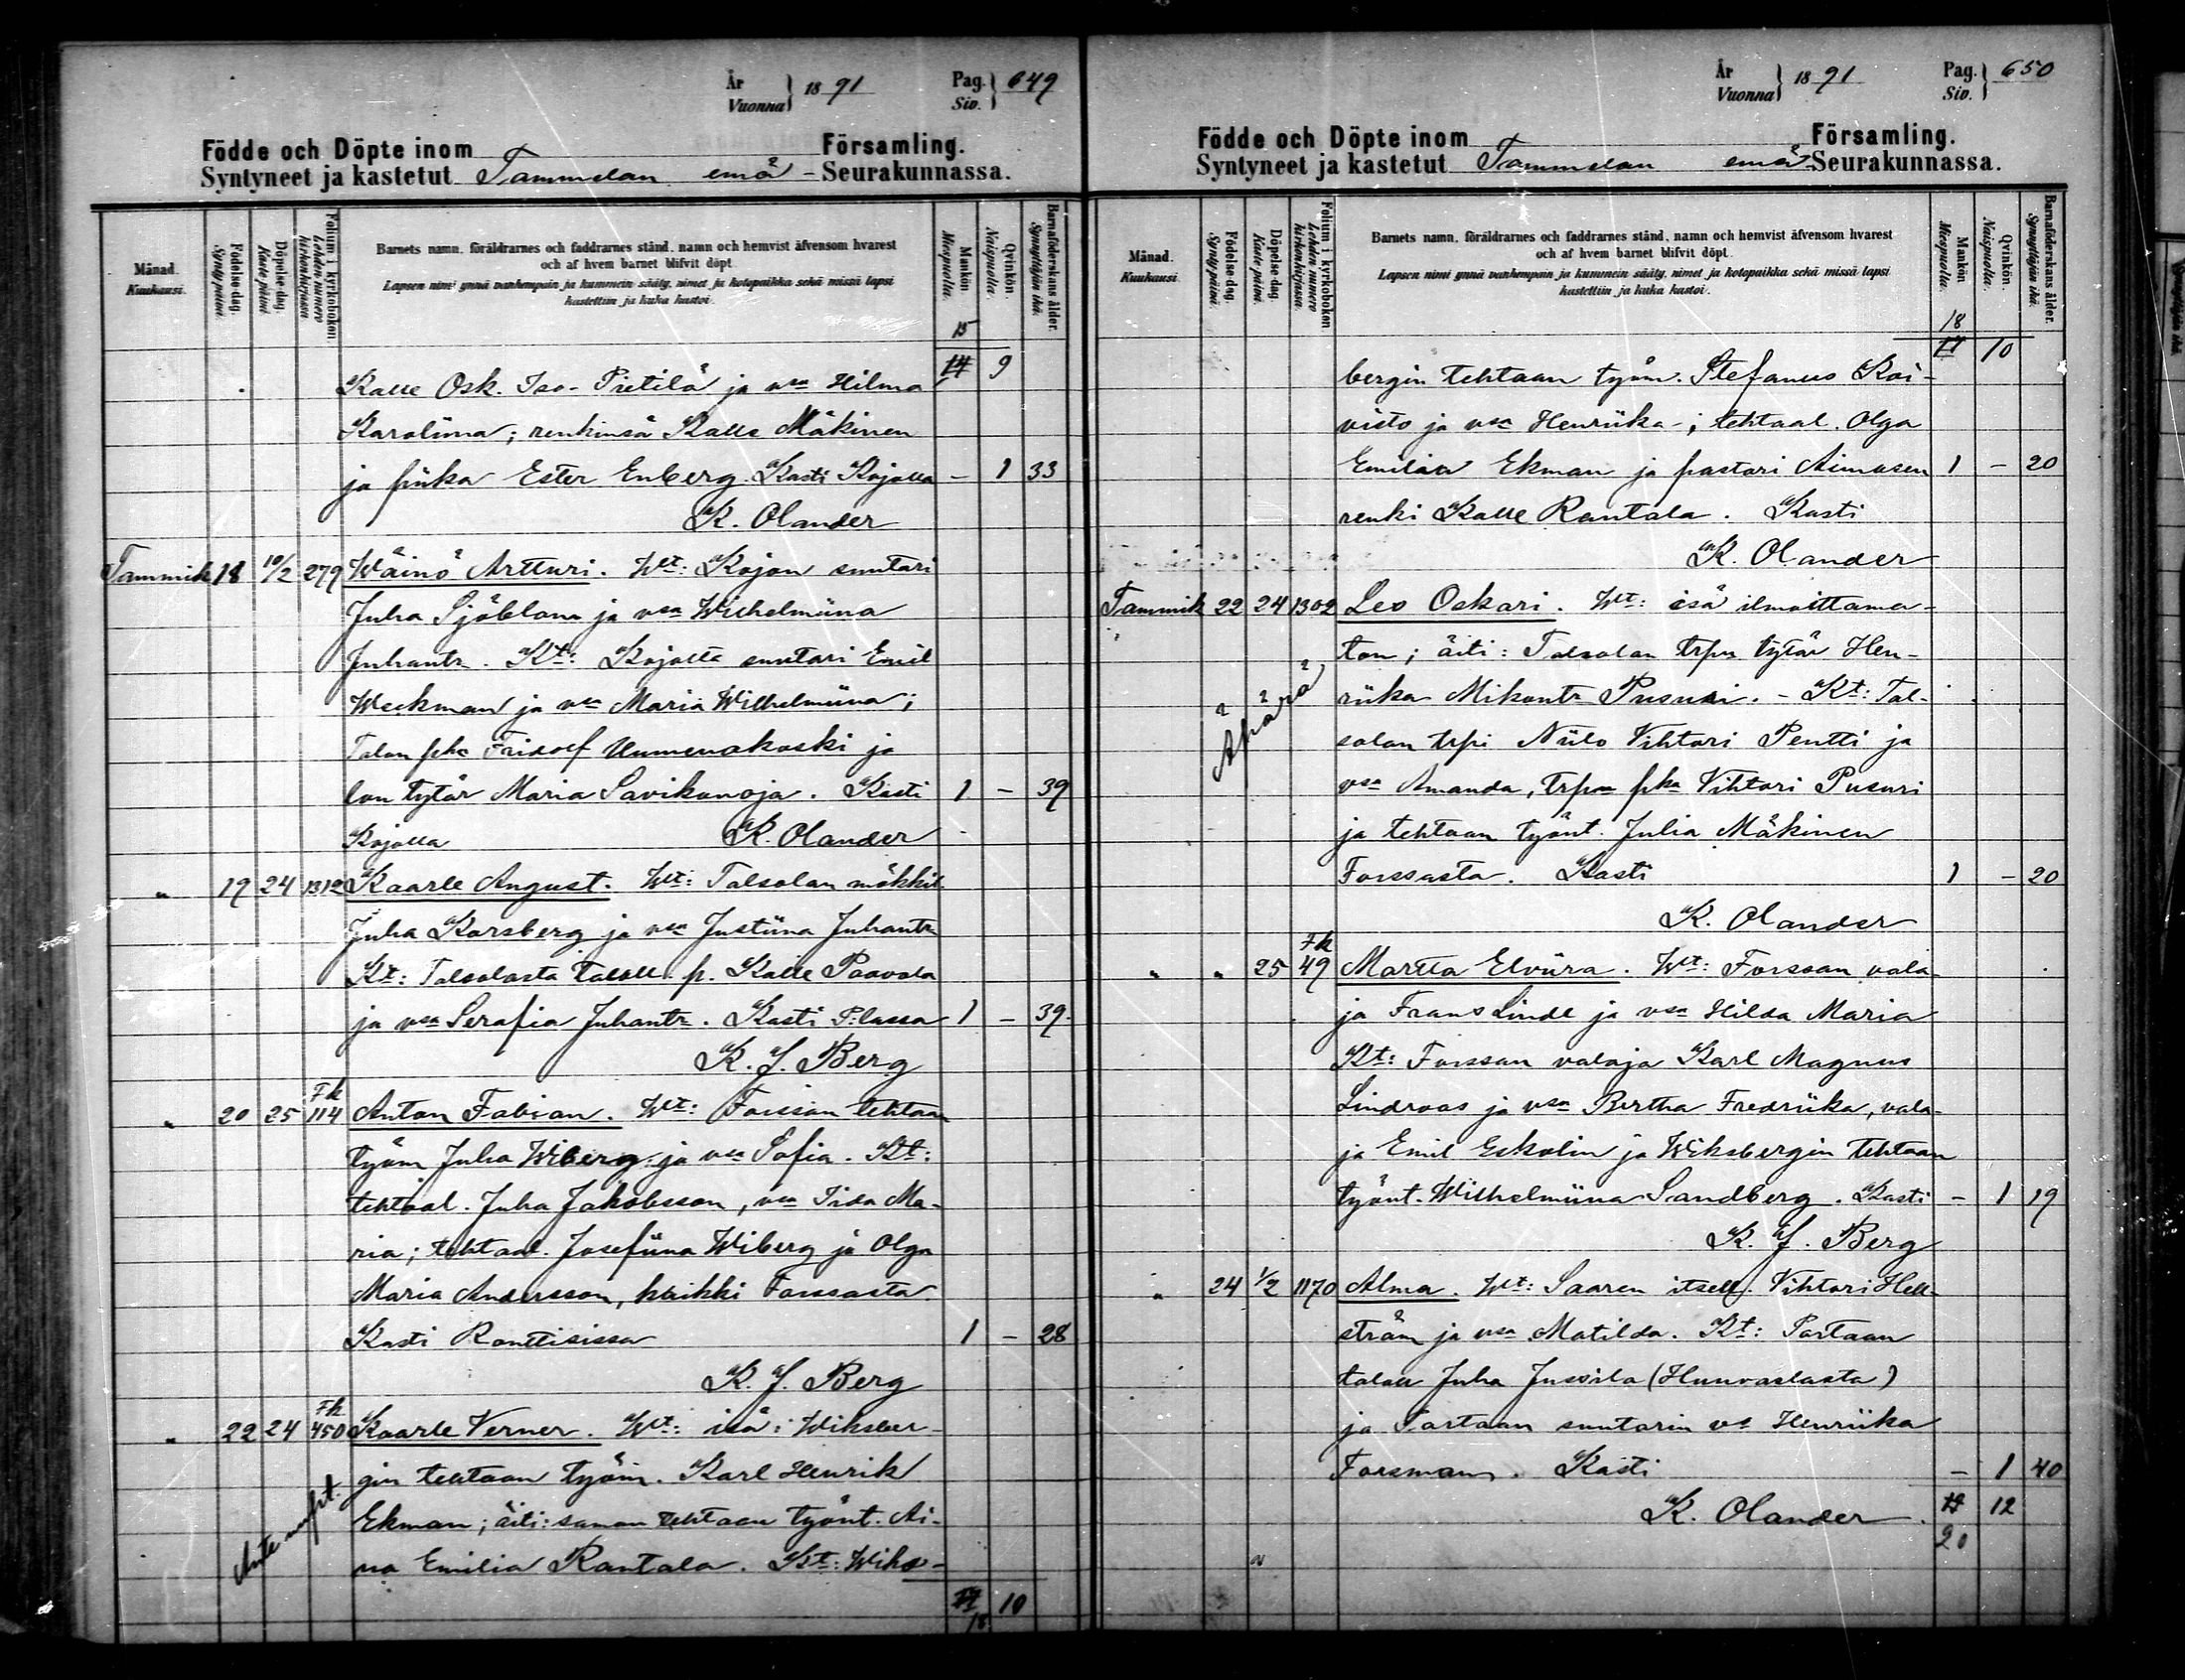 År
Vuonna } 1891 Pag. Siv. } 649
Födde och Döpte inom Församling.
Syntyneet ja kastetut Tammelan emä - Seurakunnassa.
Månad. Kuukausi. Födelse-dag. Synty päivä. Döpelse-dag. Kaste päivä. Folium i kyrkoboken. Lehden numero kirkonkirjassa Barnets namn, föräldrarnes och faddrarnes stånd, namn och hemvist äfvensom hvarest Mankön. Miespuolia. Qvinkön. Naispuolia. Barnaföderskans ålder. Synnyttäjän ikä.
och af hvem barnet blifvit döpt.
Lapsen nimi ynnä vanhempain ja kummein sääty, nimet ja kotopaikka sekä missä lapsi
kastettiin ja kuka kastoi.
15
14 9
Kalle Osk. Iso-Pietilä ja vsa Hilma
Karoliina; renkinsä Kalle Mäkinen
ja piika Ester Enberg. Kasti Kojolla - 1 33
K. Olander
Tammik 18 10/2 279 Wäinö Artturi. Wt: Kojon suutari
Juha Sjöblom ja vsa Wilhelmiina
Juhantr. Kt: Kojolta suutari Emil
Weckman ja vsa Maria Wilhelmiina;
Talon pka Fridolf Uunenakoski ja
lon tytär Maria Savikonoja. Kasti 1 - 39
Kojolla K. Olander
" 19 24 1312 Kaarle August. Wt: Talsolan mökkil.
Juha Korsberg ja vsa Justiina Juhantr
Kt: Talsolasta taloll. p. Kalle Paavola
ja vsa Serafia Juhantr. Kasti P:lassa 1 - 39.
K. J. Berg
" 20 25 Fk 114 Anton Fabian. Wt: Forssan tehtaan
työm Juha Wiberg ja vsa Sofia. Kt:
tehtaal. Juha Jakobsson, vsa Iida Ma-
ria; tehtaal. Josefiina Wiberg ja Olga
Maria Andersson, kaikki Forssasta.
Kasti Ronttisissa 1 - 28
K. J. Berg
" 22 24 Fk 450 Kaarle Verner. Wt: isä: Wiksber-
gin tehtaan työm. Karl Henrik
Ekman; äiti: saman tehtaan työnt. Ai-
na Emilia Rantala. Kt: Wiks-
17 10
18
År
Vuonna } 1891 Pag. Siv. } 650
Födde och Döpte inom Församling.
Syntyneet ja kastetut Tammelan emä Seurakunnassa.
Månad. Kuukausi. Födelse-dag. Synty päivä. Döpelse-dag. Kaste päivä. Folium i kyrkoboken. Lehden numero kirkonkirjassa. Barnets namn, föräldrarnes och faddrarnes stånd, namn och hemvist äfvensom hvarest Mankön. Miespuolia. Qvinkön. Naispuolia. Barnaföderskans ålder. Synnyttäjän ikä.
och af hvem barnet blifvit döpt.
Lapsen nimi ynnä vanhempain ja kummein sääty, nimet ja kotopaikka sekä missä lapsi
kastettiin ja kuka kastoi.
18
17 10
bergin tehtaan työm. Stefanus Koi-
visto ja vsa Henriika; tehtaal. Olga
Emilia Ekman ja pastori Aimasen 1 - 20
renki Kalle Rantala. Kasti
K. Olander
Tammik 22 24 1302 Leo Oskari. Wt: isä ilmoittama-
ton; äiti: Talsolan trpn tytär Hen-
Äpärä riika Mikontr Pusuri. - Kt: Tal-
solan trpi Niilo Vihtori Pentti ja
vsa Amanda, trpn pka Vihtori Pusuri
ja tehtaan työnt. Julia Mäkinen
Forssasta. Kasti 1 - 20
K. Olander
" " 25 Fk 49 Martta Elviira. Wt: Forssan vala-
ja Frans Linde ja vsa Hilda Maria
Kt: Forssan valaja Karl Magnus
Lindroos ja vsa Bertha Fredriika, vala-
ja Emil Eskolin ja Wiksbergin tehtaan
työnt. Wilhelmiina Sandberg. Kasti - 1 19
K. J. Berg
" 24 1/2 1170 Alma. Wt: Saaren itsell. Vihtori Hell-
ström ja vsa Matilda. Kt: Portaan
talon Juha Jussila (Hunvaslasta)
ja Portaan suutarin va Henriika
Forsman. Kasti - 1 40
K. Olander. 12
20